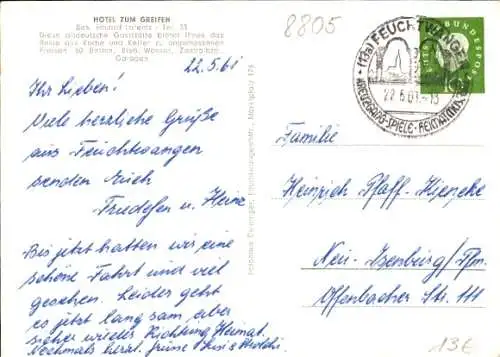 HOTEL ZUM GREIFEN
Bes. Tel. 53
Diese altdeutsche Gaststätte bietet Ihnen das
Beste aus Küche und Keller zu angemessenen
Preisen 60 Betten, fließ. Wasser, Zentralhzg.
Garagen
8805
22.5.61
Ihr Lieben!
Viele herzliche Grüße
aus Feuchtwangen
senden Euch
Friedchen u. Heinz
Bis jetzt hatten wir eine
schöne Fahrt und viel
gesehen. Leider geht
es jetzt langsam aber
sicher wieder Richtung Heimat.
Nochmals herzl. Grüße
(13a) FEUCHTWANGEN
22.5.61-13
KREUZGANG-SPIELE-HEIMATMUSEUM
DEUTSCHE BUNDESPOST
10
Familie
Heinrich Pfaff-Hieneke
Neu-Isenburg/Ffm.
Offenbacher Str. 111
13€